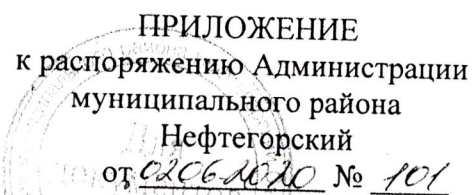 ПРИЛОЖЕНИЕ
к распоряжению Администрации
муниципального района
Нефтегорский
от 02.06.2020 № 101